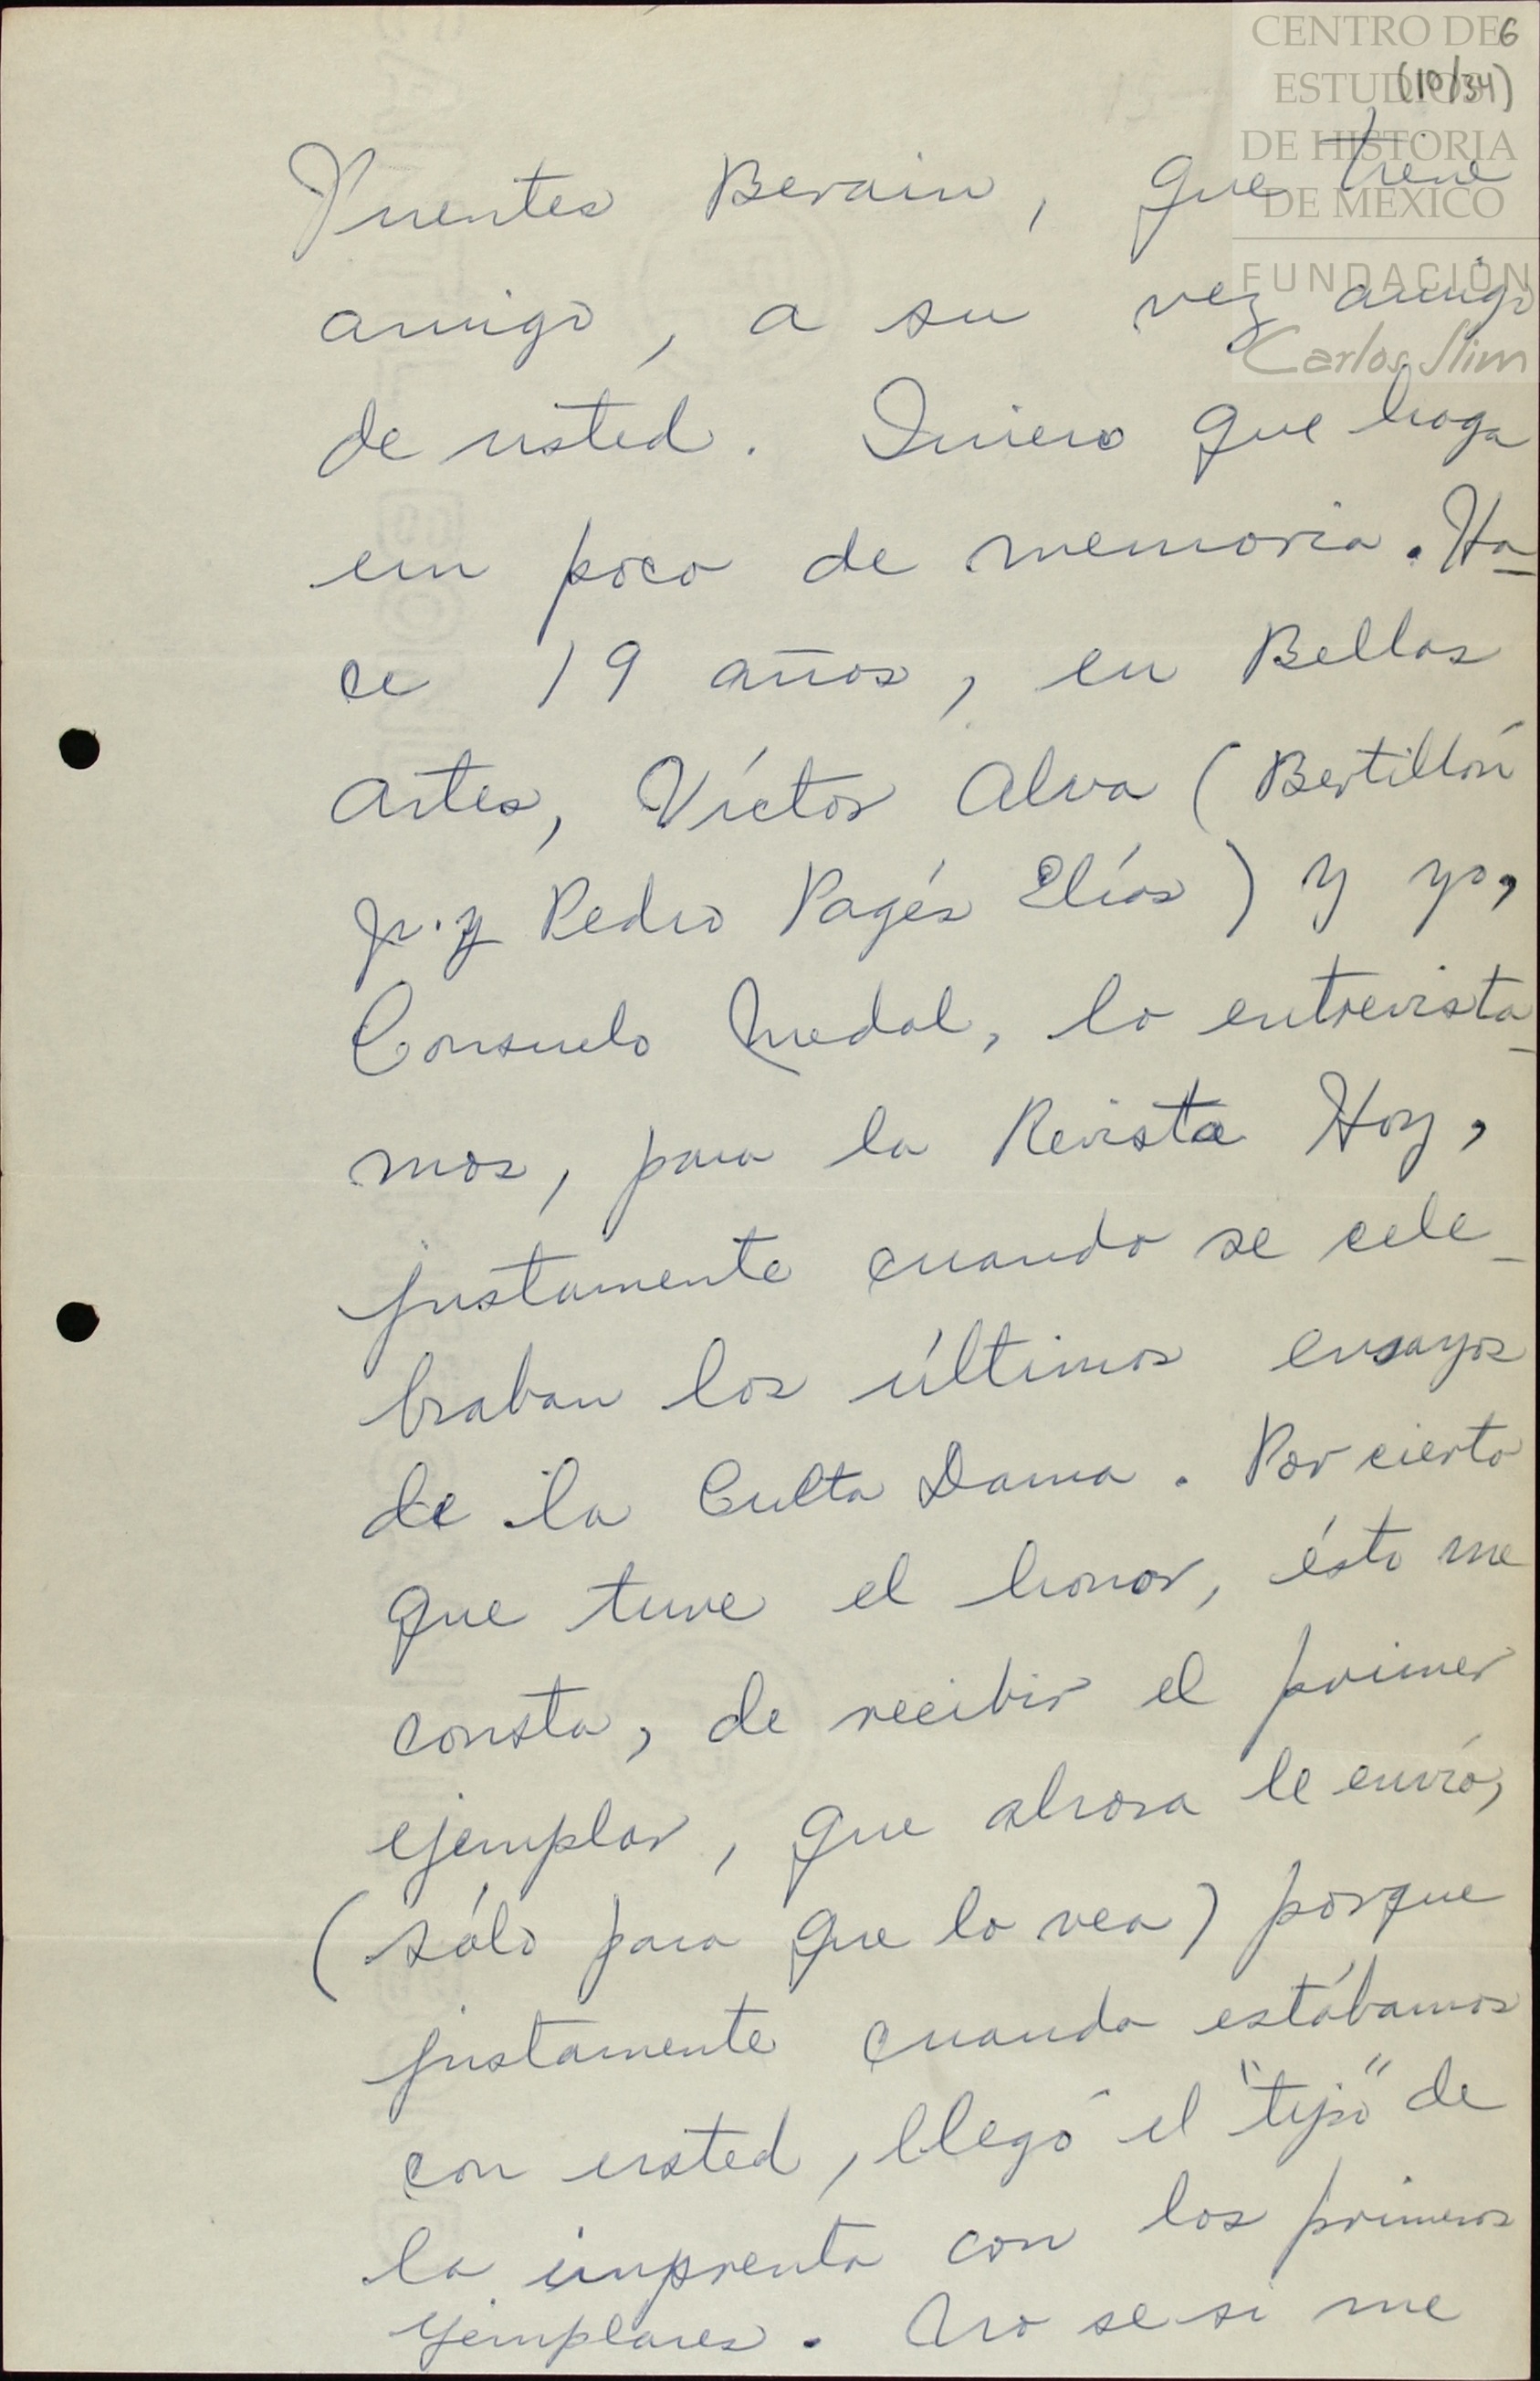 CENTRO DE
ESTUDIOS
DE HISTORIA
DE MÉXICO
FUNDACIÓN
Carlos Slim
6
(10/34)
Fuentes Berain, que tiene
amigo, a su vez amigo
de usted. Quiero que haga
un poco de memoria. Ha-
ce 19 años, en Bellas
Artes, Víctor Alva (Bertillón
Jr. y Pedro Pagés Elías) y yo,
Consuelo Medal, lo entrevista-
mos, para la Revista Hoy,
justamente cuando se cele-
braban los últimos ensayos
de la Culta Dama. Por cierto
que tuve el honor, ésto me
consta, de recibir el primer
ejemplar, que ahora le envío,
(sólo para que lo vea) porque
justamente cuando estábamos
con usted, llegó el "tipo" de
la imprenta con los primeros
ejemplares. No se si me